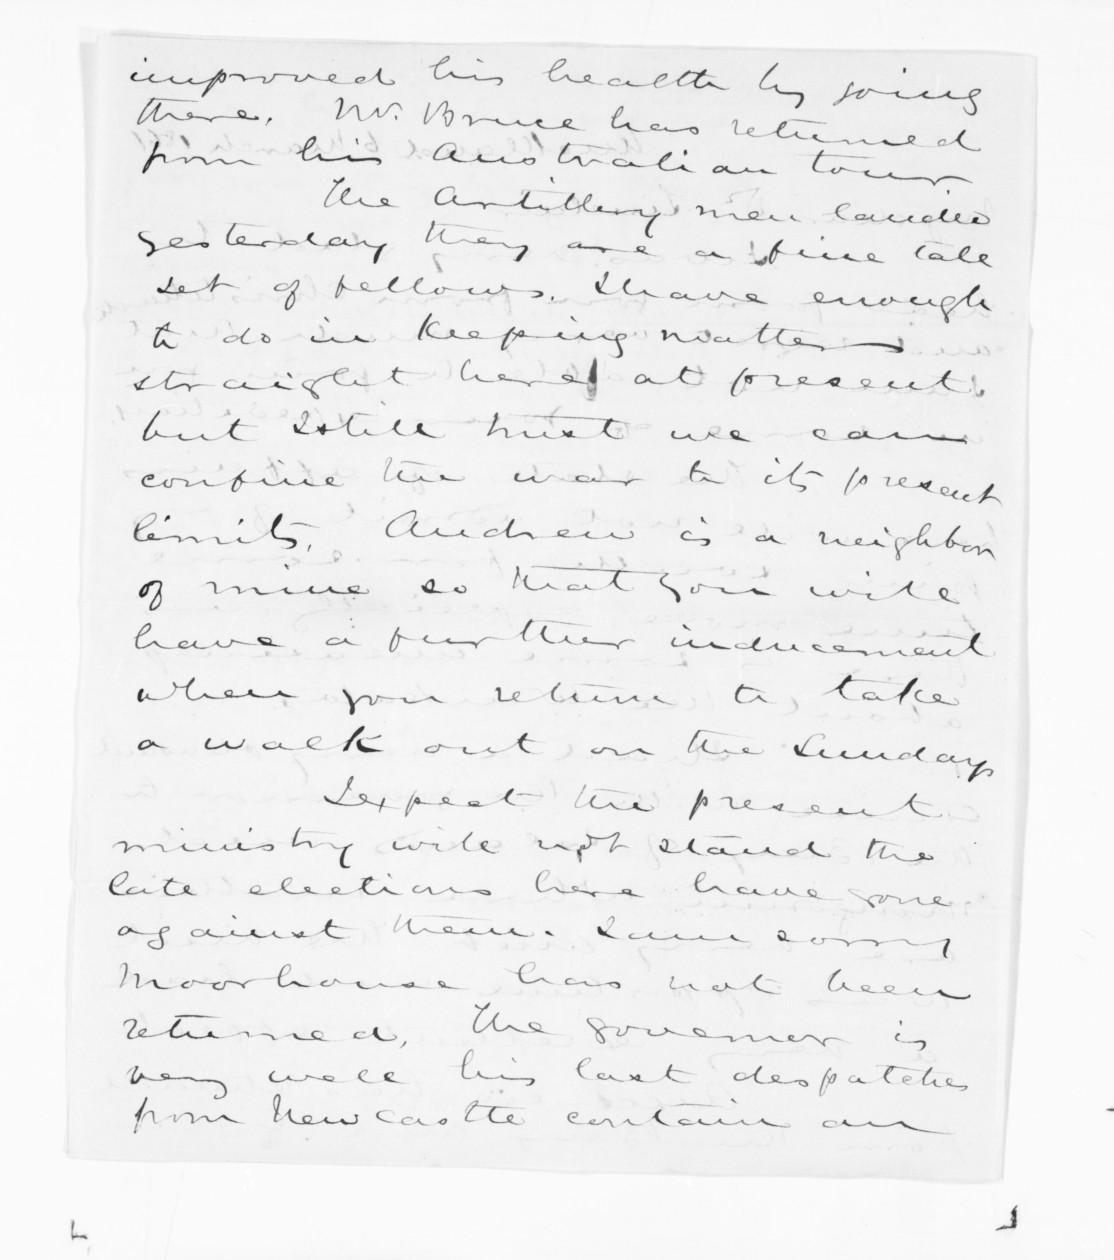 improved his health by going
there. Mr. Bruce has returned
from his Australian tour
The Artillery men landed
yesterday they are a fine tall
set of fellows. I have enough
to do in keeping matters
straight here at present
but I still trust we can
confine the war to its present
limits. Andrew is a neighbor
of mine so that you will
have a further inducement
when you return to take
a walk out on the Sundays
I expect the present
ministry will not stand the
late elections here have gone
against them. I am sorry
Moorhouse has not been
returned. The governor is
very well his last despatches
from Newcastle contain an